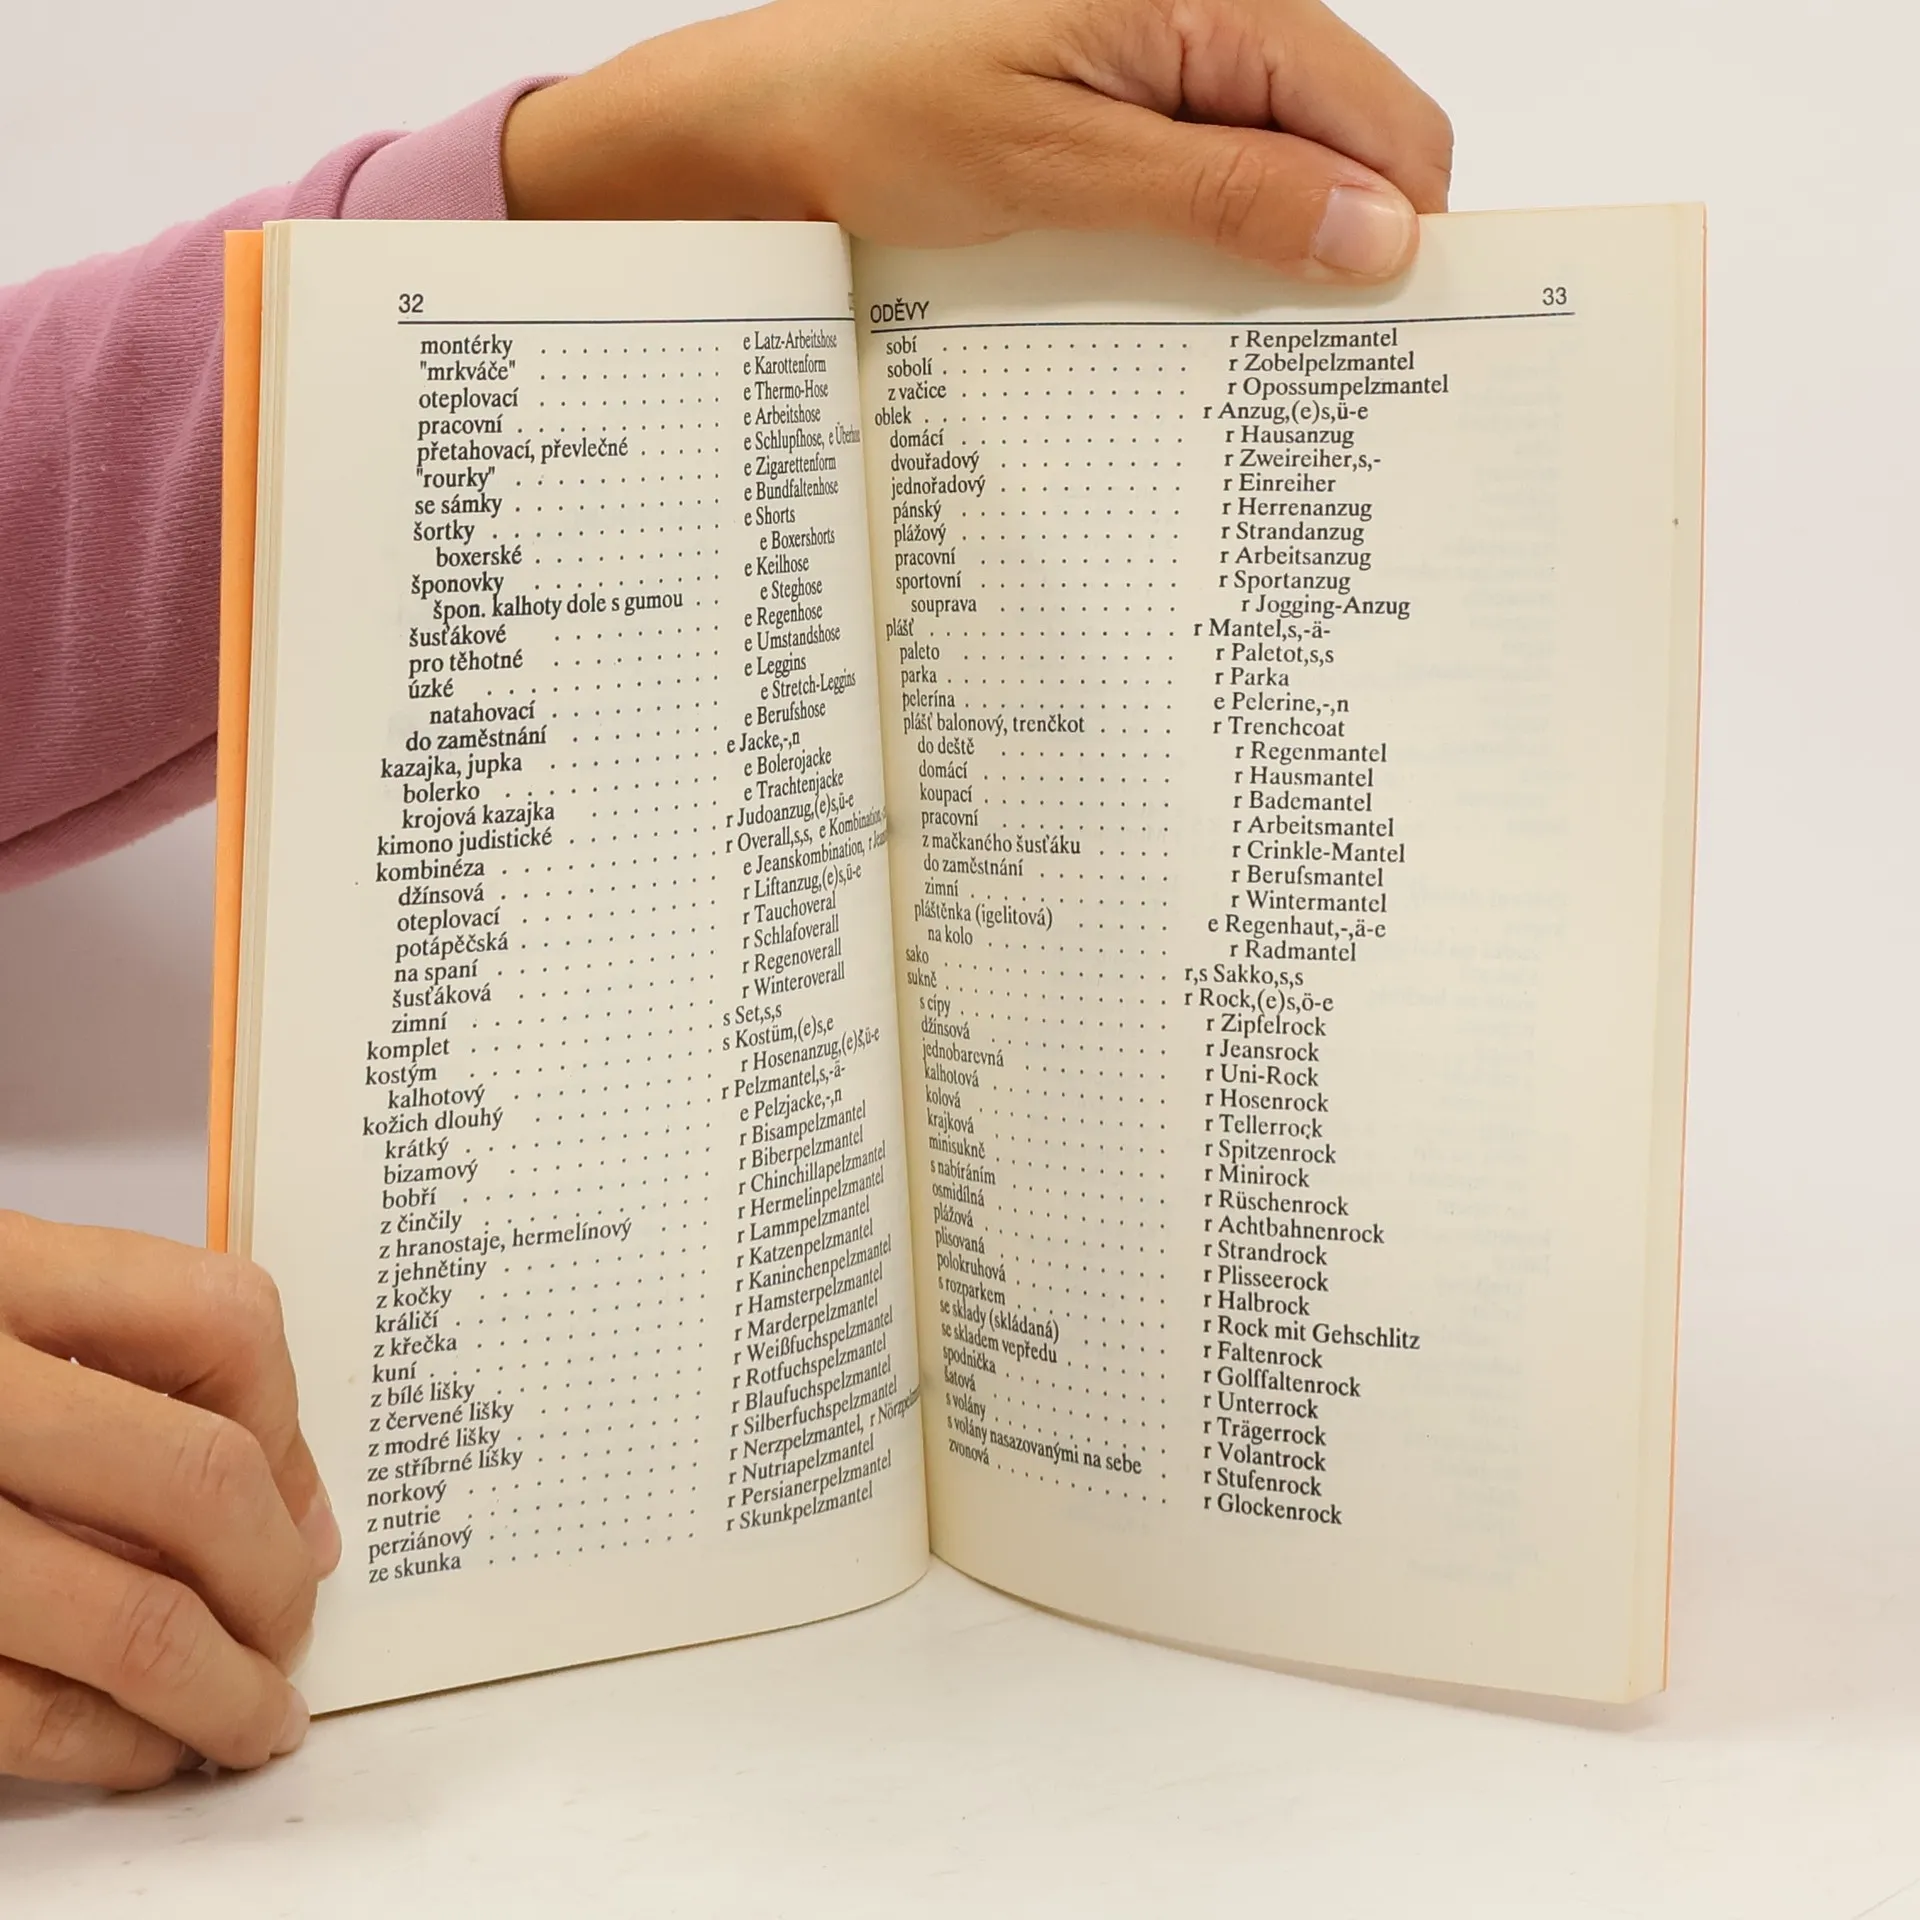 32
montérky . . . . . . . . . . e Latz-Arbeitshose
"mrkváče" . . . . . . . . . . e Karottenform
oteplovací . . . . . . . . . . e Thermo-Hose
pracovní . . . . . . . . . . . e Arbeitshose
přetahovací, převlečné . . . . . e Schlupfhose, e
"rourky" . . . . . . . . . . . e Zigarettenform
se sámky . . . . . . . . . . . e Bundfaltenhose
šortky . . . . . . . . . . . . e Shorts
boxerské . . . . . . . . . . e Boxershorts
šponovky . . . . . . . . . . e Keilhose
špon. kalhoty dole s gumou . . e Steghose
šusťákové . . . . . . . . . e Regenhose
pro těhotné . . . . . . . . . e Umstandshose
úzké . . . . . . . . . . . . e Leggins
natahovací . . . . . . . . . e Stretch-Leggins
do zaměstnání . . . . . . . . e Berufshose
kazajka, jupka . . . . . . . . . e Jacke,-,n
bolerko . . . . . . . . . . . e Bolerojacke
krojová kazajka . . . . . . . e Trachtenjacke
kimono judistické . . . . . . . . r Judoanzug,(e)s,ü-e
kombinéza . . . . . . . . . . . r Overall,s,s, e Kombination,
džínsová . . . . . . . . . . . e Jeanskombination, r
oteplovací . . . . . . . . . . r Liftanzug,(e)s,ü-e
potápěčská . . . . . . . . . . r Tauchoveral
na spaní . . . . . . . . . . . r Schlafoverall
šusťáková . . . . . . . . . . r Regenoverall
zimní . . . . . . . . . . . . r Winteroverall
komplet . . . . . . . . . . . . s Set,s,s
kostým . . . . . . . . . . . . s Kostüm,(e)s,e
kalhotový . . . . . . . . . . r Hosenanzug,(e)š,ü-e
kožich dlouhý . . . . . . . . . r Pelzmantel,s,-ä-
krátký . . . . . . . . . . . . e Pelzjacke,-,n
bizamový . . . . . . . . . . r Bisampelzmantel
bobří . . . . . . . . . . . . r Biberpelzmantel
z činčily . . . . . . . . . . . r Chinchillapelzmantel
z hranostaje, hermelínový . . . r Hermelinpelzmantel
z jehnětiny . . . . . . . . . . r Lammpelzmantel
z kočky . . . . . . . . . . . r Katzenpelzmantel
králičí . . . . . . . . . . . . r Kaninchenpelzmantel
z křečka . . . . . . . . . . . r Hamsterpelzmantel
kuní . . . . . . . . . . . . . r Marderpelzmantel
z bílé lišky . . . . . . . . . . r Weißfuchspelzmantel
z červené lišky . . . . . . . . r Rotfuchspelzmantel
z modré lišky . . . . . . . . . r Blaufuchspelzmantel
ze stříbrné lišky . . . . . . . . r Silberfuchspelzmantel
norkový . . . . . . . . . . . r Nerzpelzmantel, r
z nutrie . . . . . . . . . . . r Nutriapelzmantel
perziánový . . . . . . . . . . r Persianerpelzmantel
ze skunka . . . . . . . . . . r Skunkpelzmantel
ODĚVY 33
sobí . . . . . . . . . . . . r Renpelzmantel
sobolí . . . . . . . . . . . . r Zobelpelzmantel
z vačice . . . . . . . . . . . r Opossumpelzmantel
oblek . . . . . . . . . . . . . r Anzug,(e)s,ü-e
domácí . . . . . . . . . . . r Hausanzug
dvouřadový . . . . . . . . . r Zweireiher,s,-
jednořadový . . . . . . . . . r Einreiher
pánský . . . . . . . . . . . r Herrenanzug
plážový . . . . . . . . . . . r Strandanzug
pracovní . . . . . . . . . . r Arbeitsanzug
sportovní . . . . . . . . . . r Sportanzug
souprava . . . . . . . . . r Jogging-Anzug
plášť . . . . . . . . . . . . . r Mantel,s,-ä-
paleto . . . . . . . . . . . r Paletot,s,s
parka . . . . . . . . . . . . r Parka
pelerína . . . . . . . . . . . e Pelerine,-,n
plášť balonový, trenčkot . . . . r Trenchcoat
do deště . . . . . . . . . r Regenmantel
domácí . . . . . . . . . . r Hausmantel
koupací . . . . . . . . . . r Bademantel
pracovní . . . . . . . . . r Arbeitsmantel
z mačkaného šusťáku . . . . r Crinkle-Mantel
do zaměstnání . . . . . . . r Berufsmantel
zimní . . . . . . . . . . . r Wintermantel
pláštěnka (igelitová) . . . . . e Regenhaut,-,ä-e
na kolo . . . . . . . . . . r Radmantel
sako . . . . . . . . . . . . . r,s Sakko,s,s
sukně . . . . . . . . . . . . . r Rock,(e)s,ö-e
s cípy . . . . . . . . . . . . r Zipfelrock
džínsová . . . . . . . . . . r Jeansrock
jednobarevná . . . . . . . . r Uni-Rock
kalhotová . . . . . . . . . . r Hosenrock
kolová . . . . . . . . . . . r Tellerrock
krajková . . . . . . . . . . r Spitzenrock
minisukně . . . . . . . . . . r Minirock
s nabíráním . . . . . . . . . r Rüschenrock
osmidílná . . . . . . . . . . r Achtbahnenrock
plážová . . . . . . . . . . . r Strandrock
plisovaná . . . . . . . . . . r Plisseerock
polokruhová . . . . . . . . . r Halbrock
s rozparkem . . . . . . . . . r Rock mit Gehschlitz
se sklady (skládaná) . . . . . r Faltenrock
se skladem vepředu . . . . . . r Golffaltenrock
spodnička . . . . . . . . . . r Unterrock
šatová . . . . . . . . . . . r Trägerrock
s volány . . . . . . . . . . . r Volantrock
s volány nasazovanými na sebe . r Stufenrock
zvonová . . . . . . . . . . . r Glockenrock